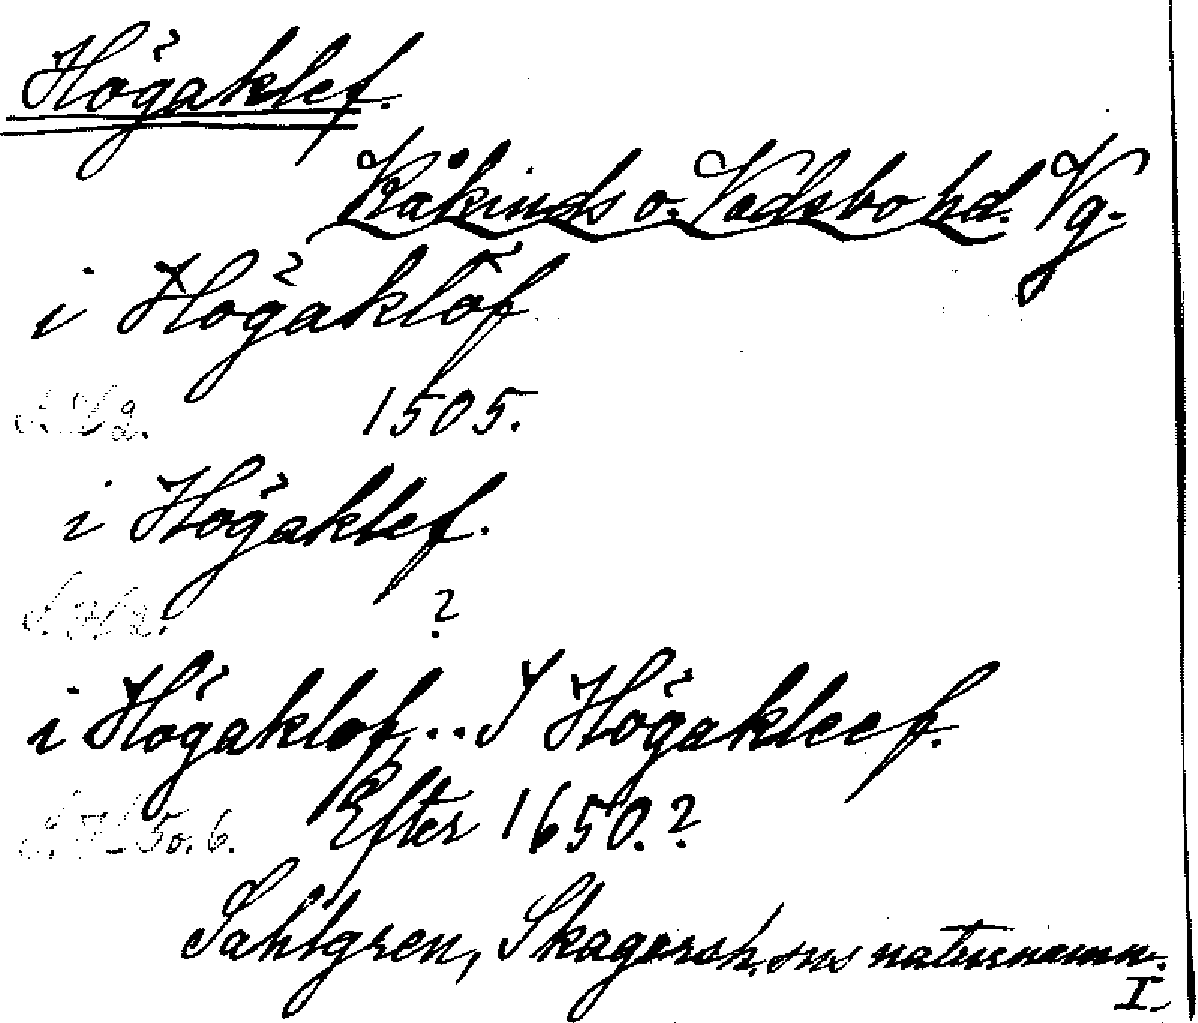 Högaklef.
Kåkinds o. Vadsbo hd. Vg.
i Högaklöf
1505.
i Högaklef.
?
i Högaklof... I Högakleef.
5 o. 6. Efter 1650.?
Sahlgren, Skagersh. sns naturnamn.
I.